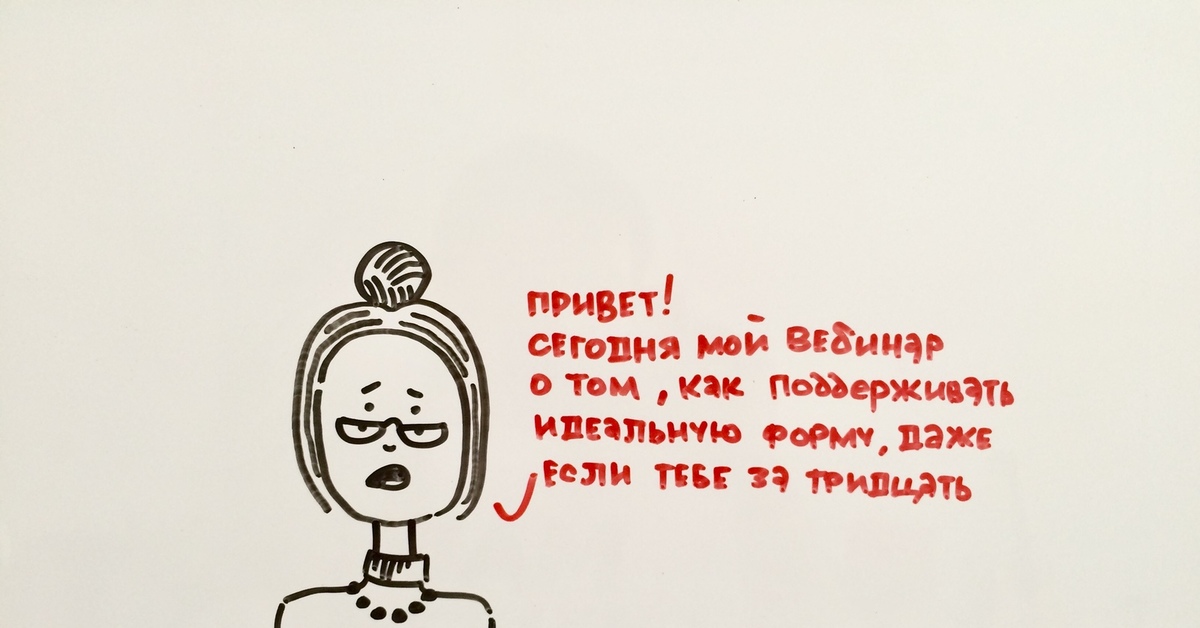 ПРИВЕТ!
СЕГОДНЯ МОЙ ВЕБИНАР
О ТОМ, КАК ПОДДЕРЖИВАТЬ
ИДЕАЛЬНУЮ ФОРМУ, ДАЖЕ
ЕСЛИ ТЕБЕ ЗА ТРИДЦАТЬ